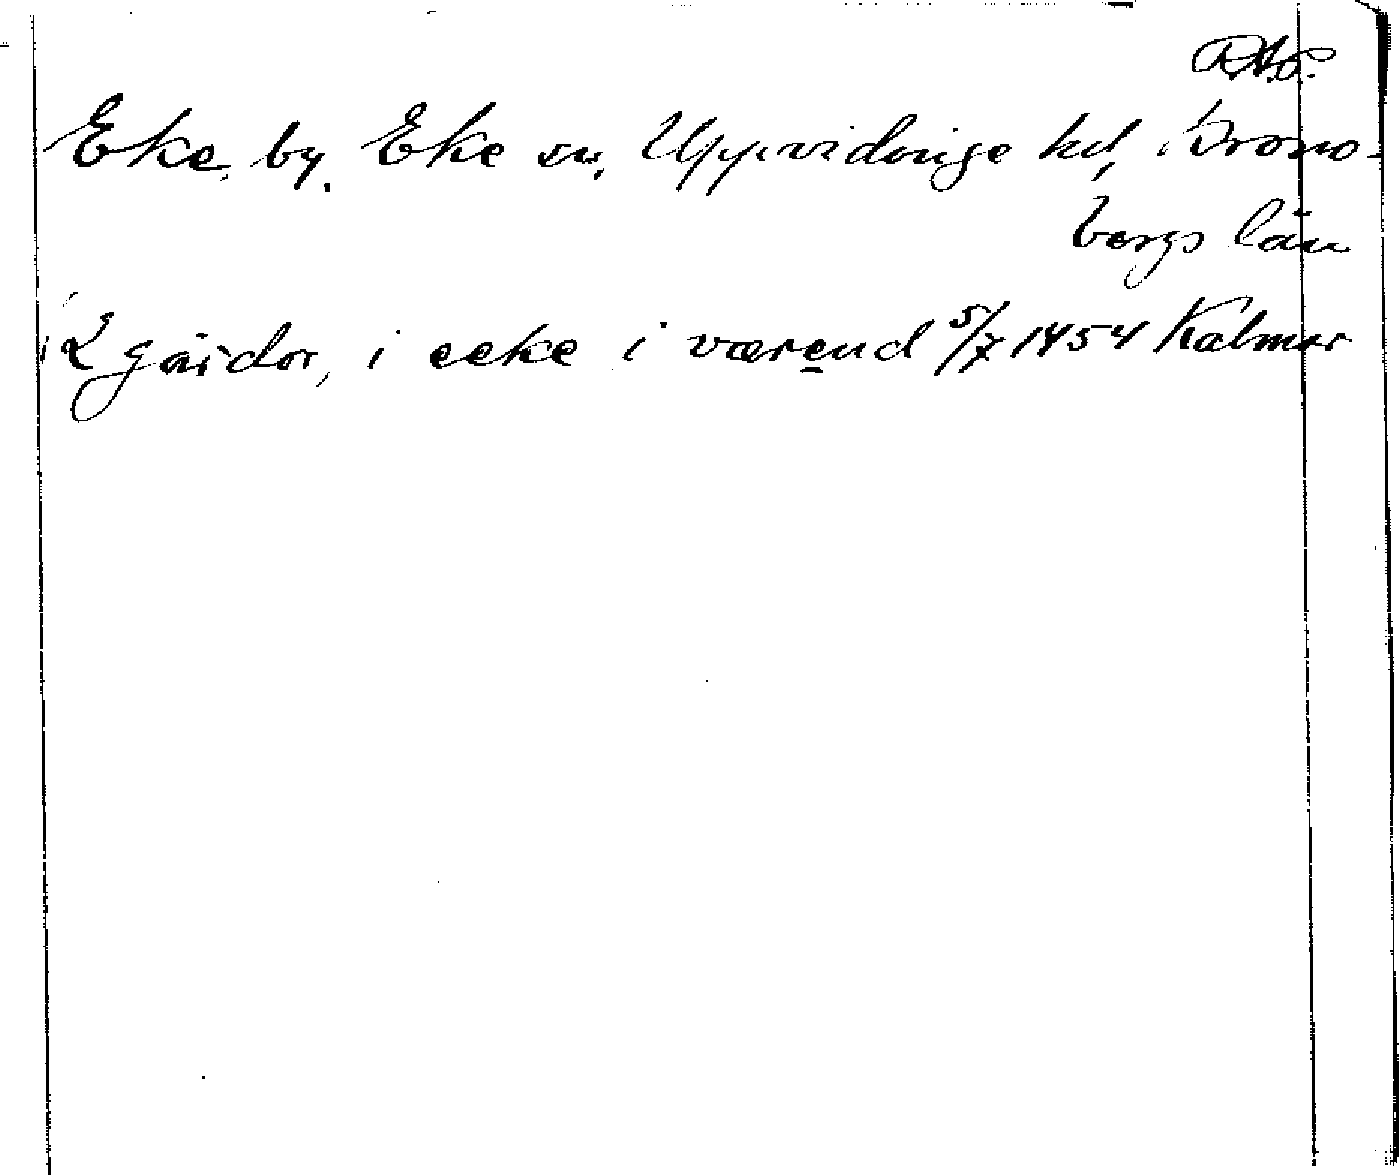 RAp.
Eke, by. Eke sn, Uppvidinge hd, Krono-
bergs län
2 gårdar, i eeke i værend 5/7 1454 Kalmar